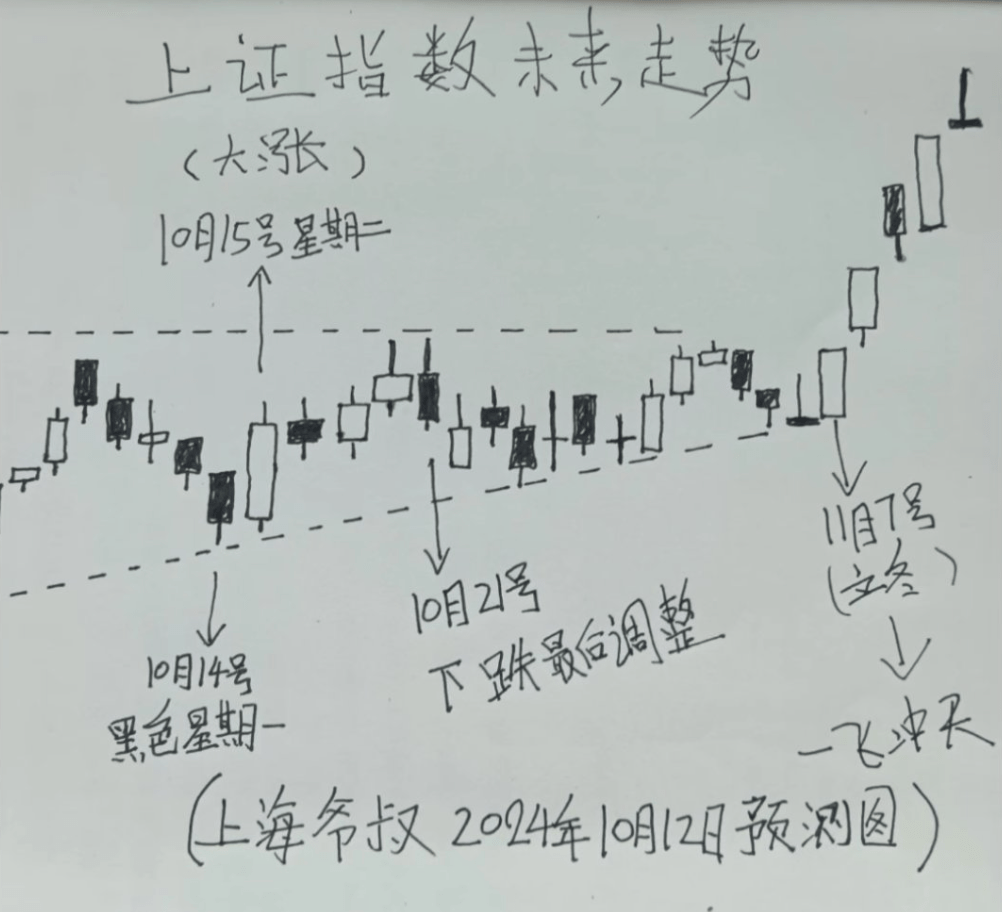 上证指数未来走势
(大涨)
10月15号星期二
10月14号
黑色星期一
10月21号
下跌最后调整
11月7号
(立冬)
一飞冲天
(上海爷叔 2024年10月12日预测图)